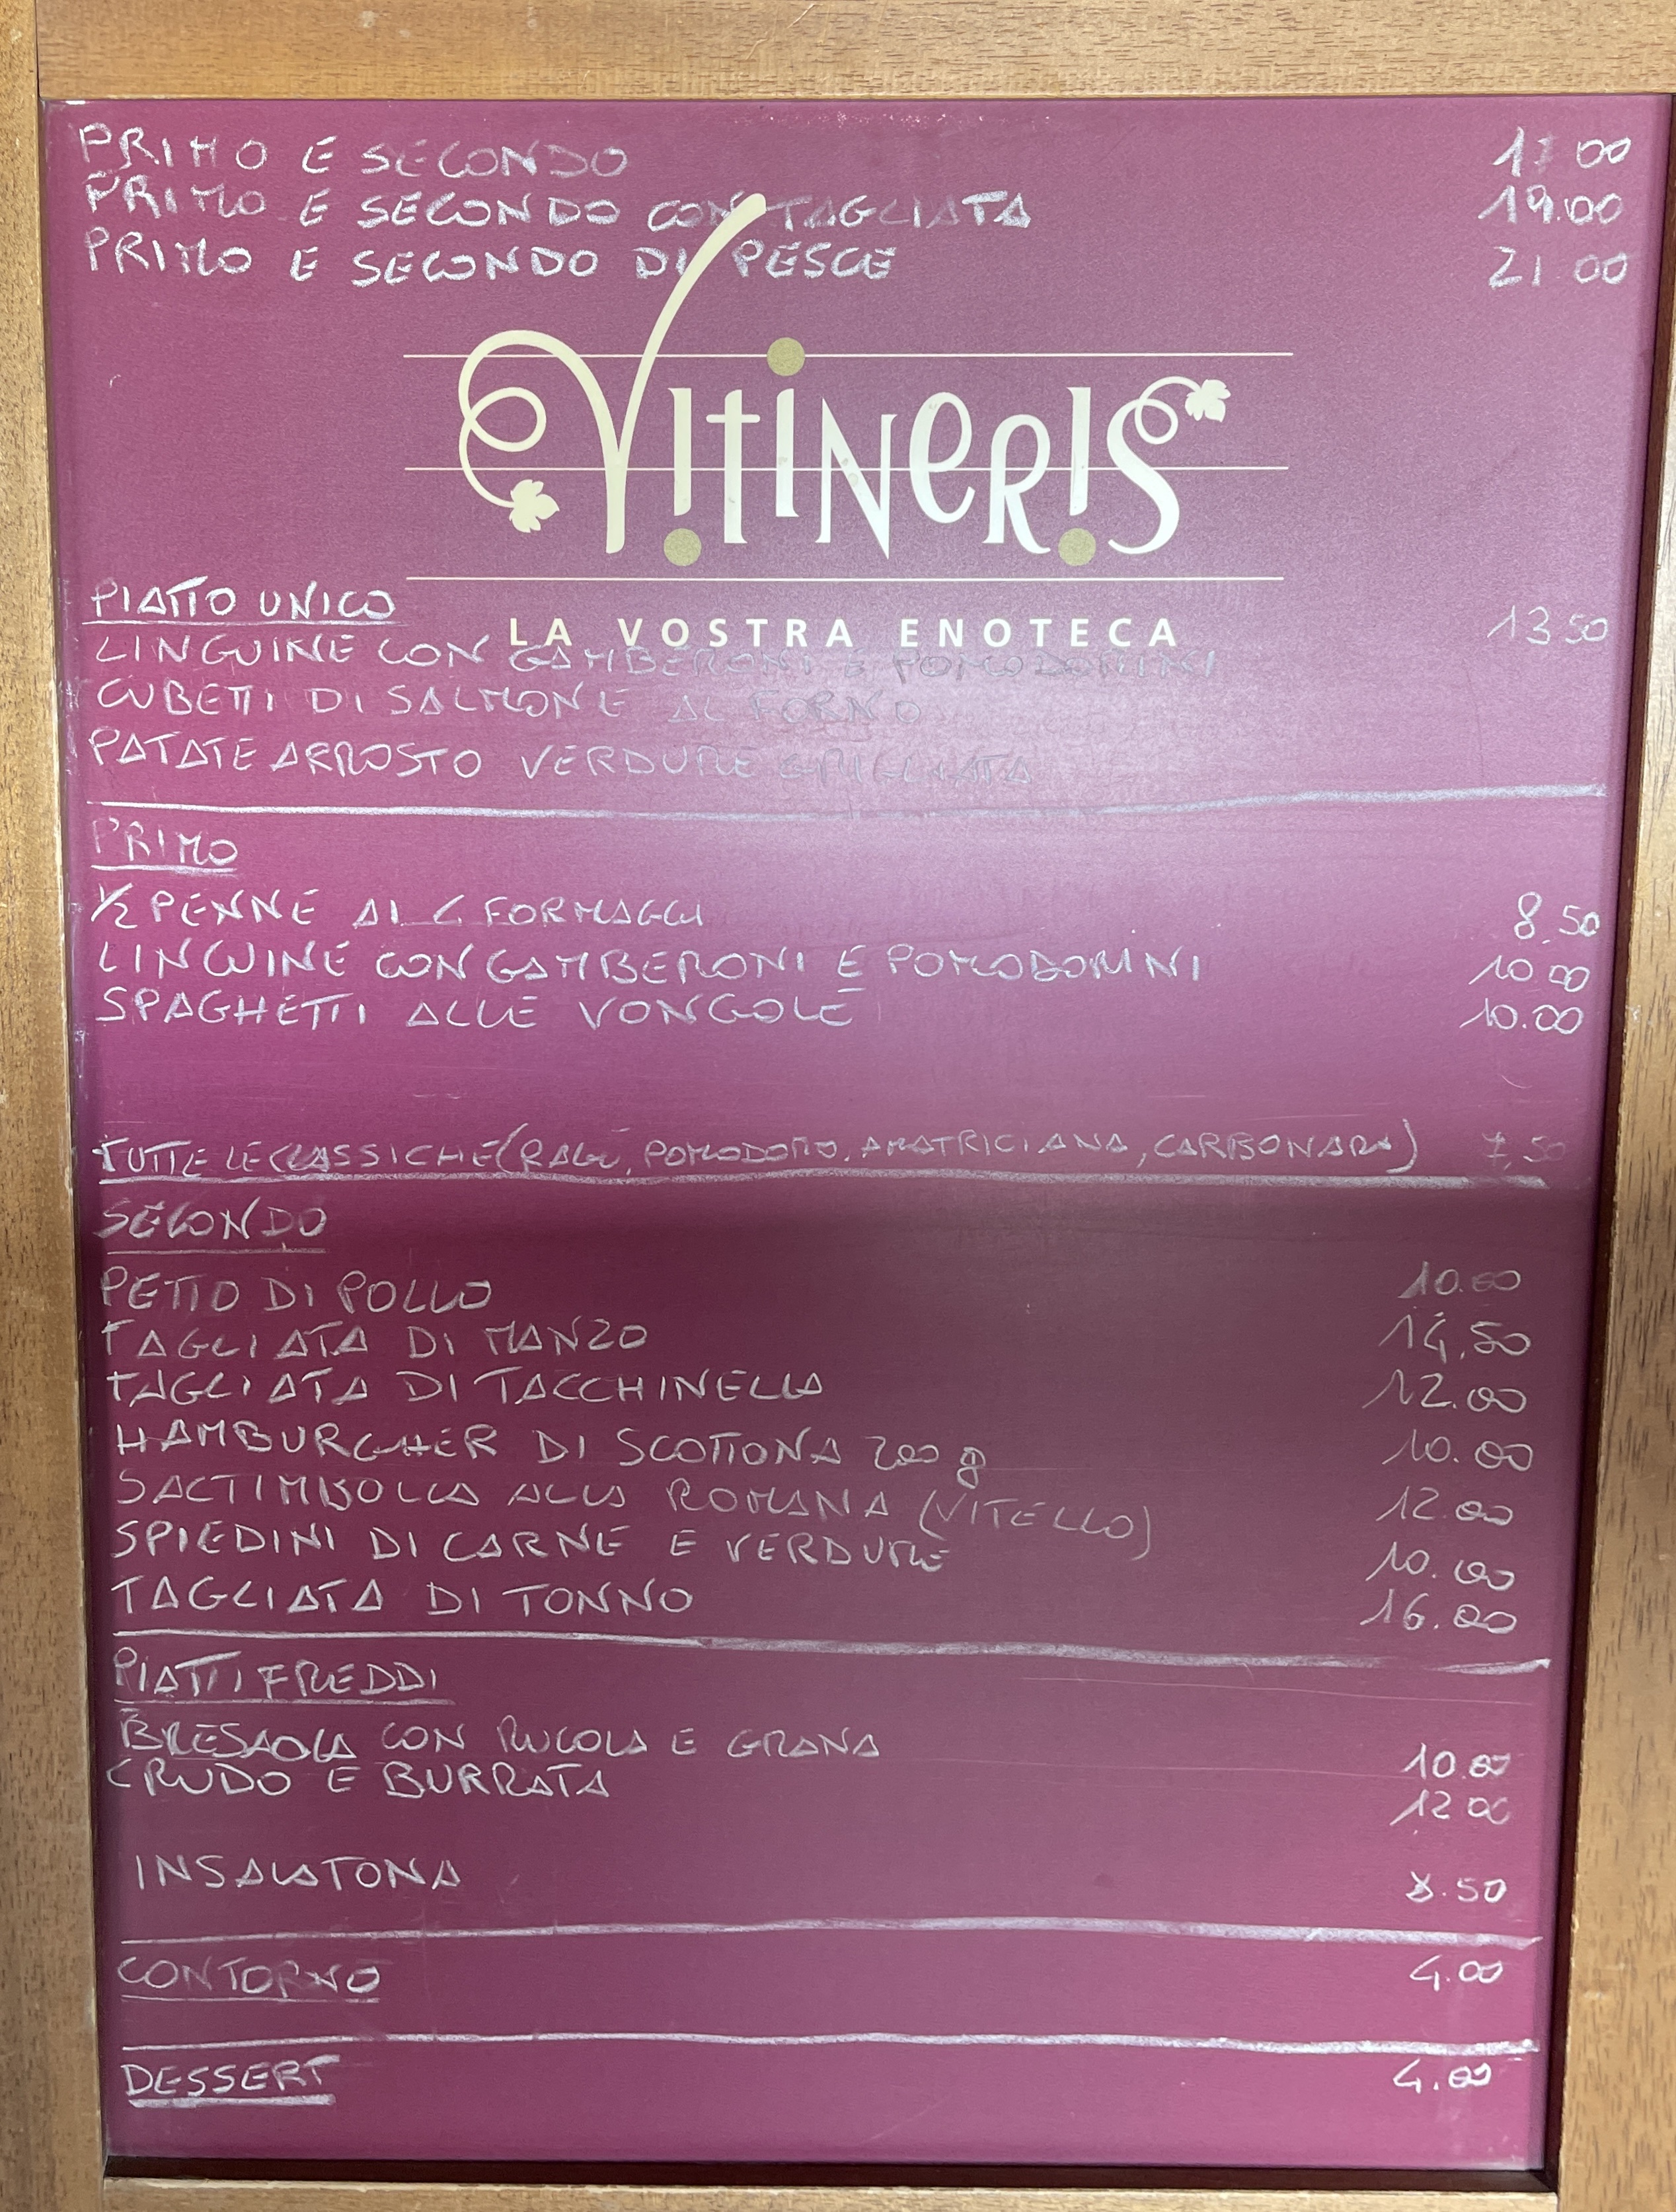 PRIMO E SECONDO 17.00
PRIMO E SECONDO CON TAGLIATA 19.00
PRIMO E SECONDO DI PESCE 21.00
VITINERIS
LA VOSTRA ENOTECA
PIATTO UNICO 13.50
LINGUINE CON GAMBERONI E POMODORINI
CUBETTI DI SALMONE AL FORNO
PATATE ARROSTO VERDURE GRIGLIATA
PRIMO
1/2 PENNE AI 4 FORMAGGI 8.50
LINGUINE CON GAMBERONI E POMODORINI 10.00
SPAGHETTI ALLE VONGOLE 10.00
TUTTE LE CLASSICHE (RAGÙ, POMODORO, AMATRICIANA, CARBONARA) 7,50
SECONDO
PETTO DI POLLO 10.00
TAGLIATA DI MANZO 14,50
TAGLIATA DI TACCHINELLA 12.00
HAMBURGHER DI SCOTTONA 200 g 10.00
SALTIMBOLLA ALLA ROMANA (VITELLO) 12.00
SPIEDINI DI CARNE E VERDURE 10.00
TAGLIATA DI TONNO 16.00
PIATTI FREDDI
BRESAOLA CON RUCOLA E GRANA 10.00
CRUDO E BURRATA 12 00
INSALATONA 8.50
CONTORNO 4.00
DESSERT 4.00